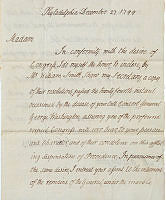 Philadelphia December 27 1799
Madam
In conformity with the desire of
Congress I do myself the honor to inclose, by
Mr. William Smith Shaw my Secretary a copy
of their resolutions passed the twenty fourth instant
occasioned by the decease of your late Consort General
George Washington, assuring you of the profound
respect Congress will ever bear to your person
and character and of their condolence on this
disposition of Providence. In pursuance of
the same desire, I entreat your assent to the interment
of the remains of the General under the marble